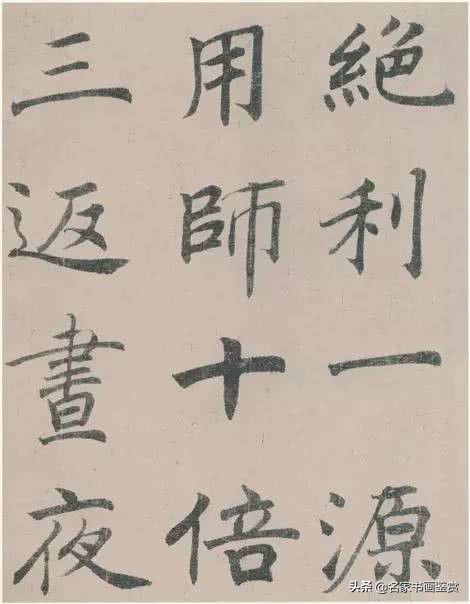 絶利一源
用師十倍
三返晝夜
头条 @名家书画鉴赏